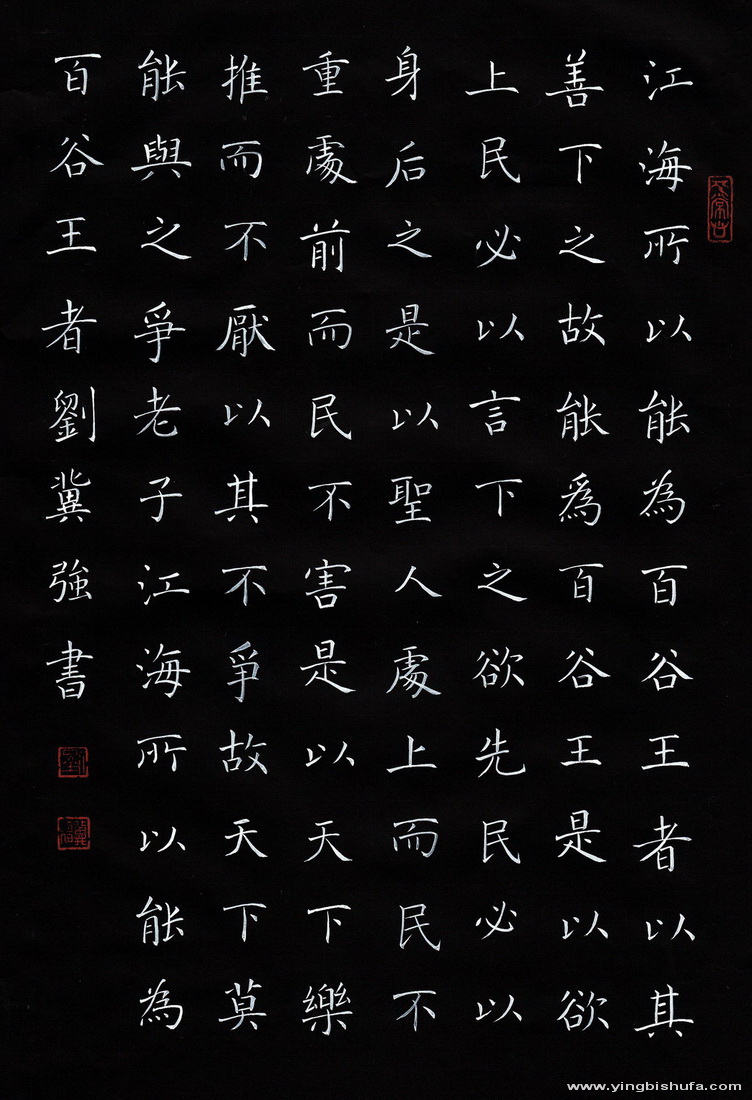 江海所以能為百谷王者以其
善下之故能爲百谷王是以欲
上民必以言下之欲先民必以
身后之是以聖人處上而民不
重處前而民不害是以天下樂
推而不厭以其不爭故天下莫
能與之爭老子江海所以能為
百谷王者劉冀強書
www.yingbishufa.com